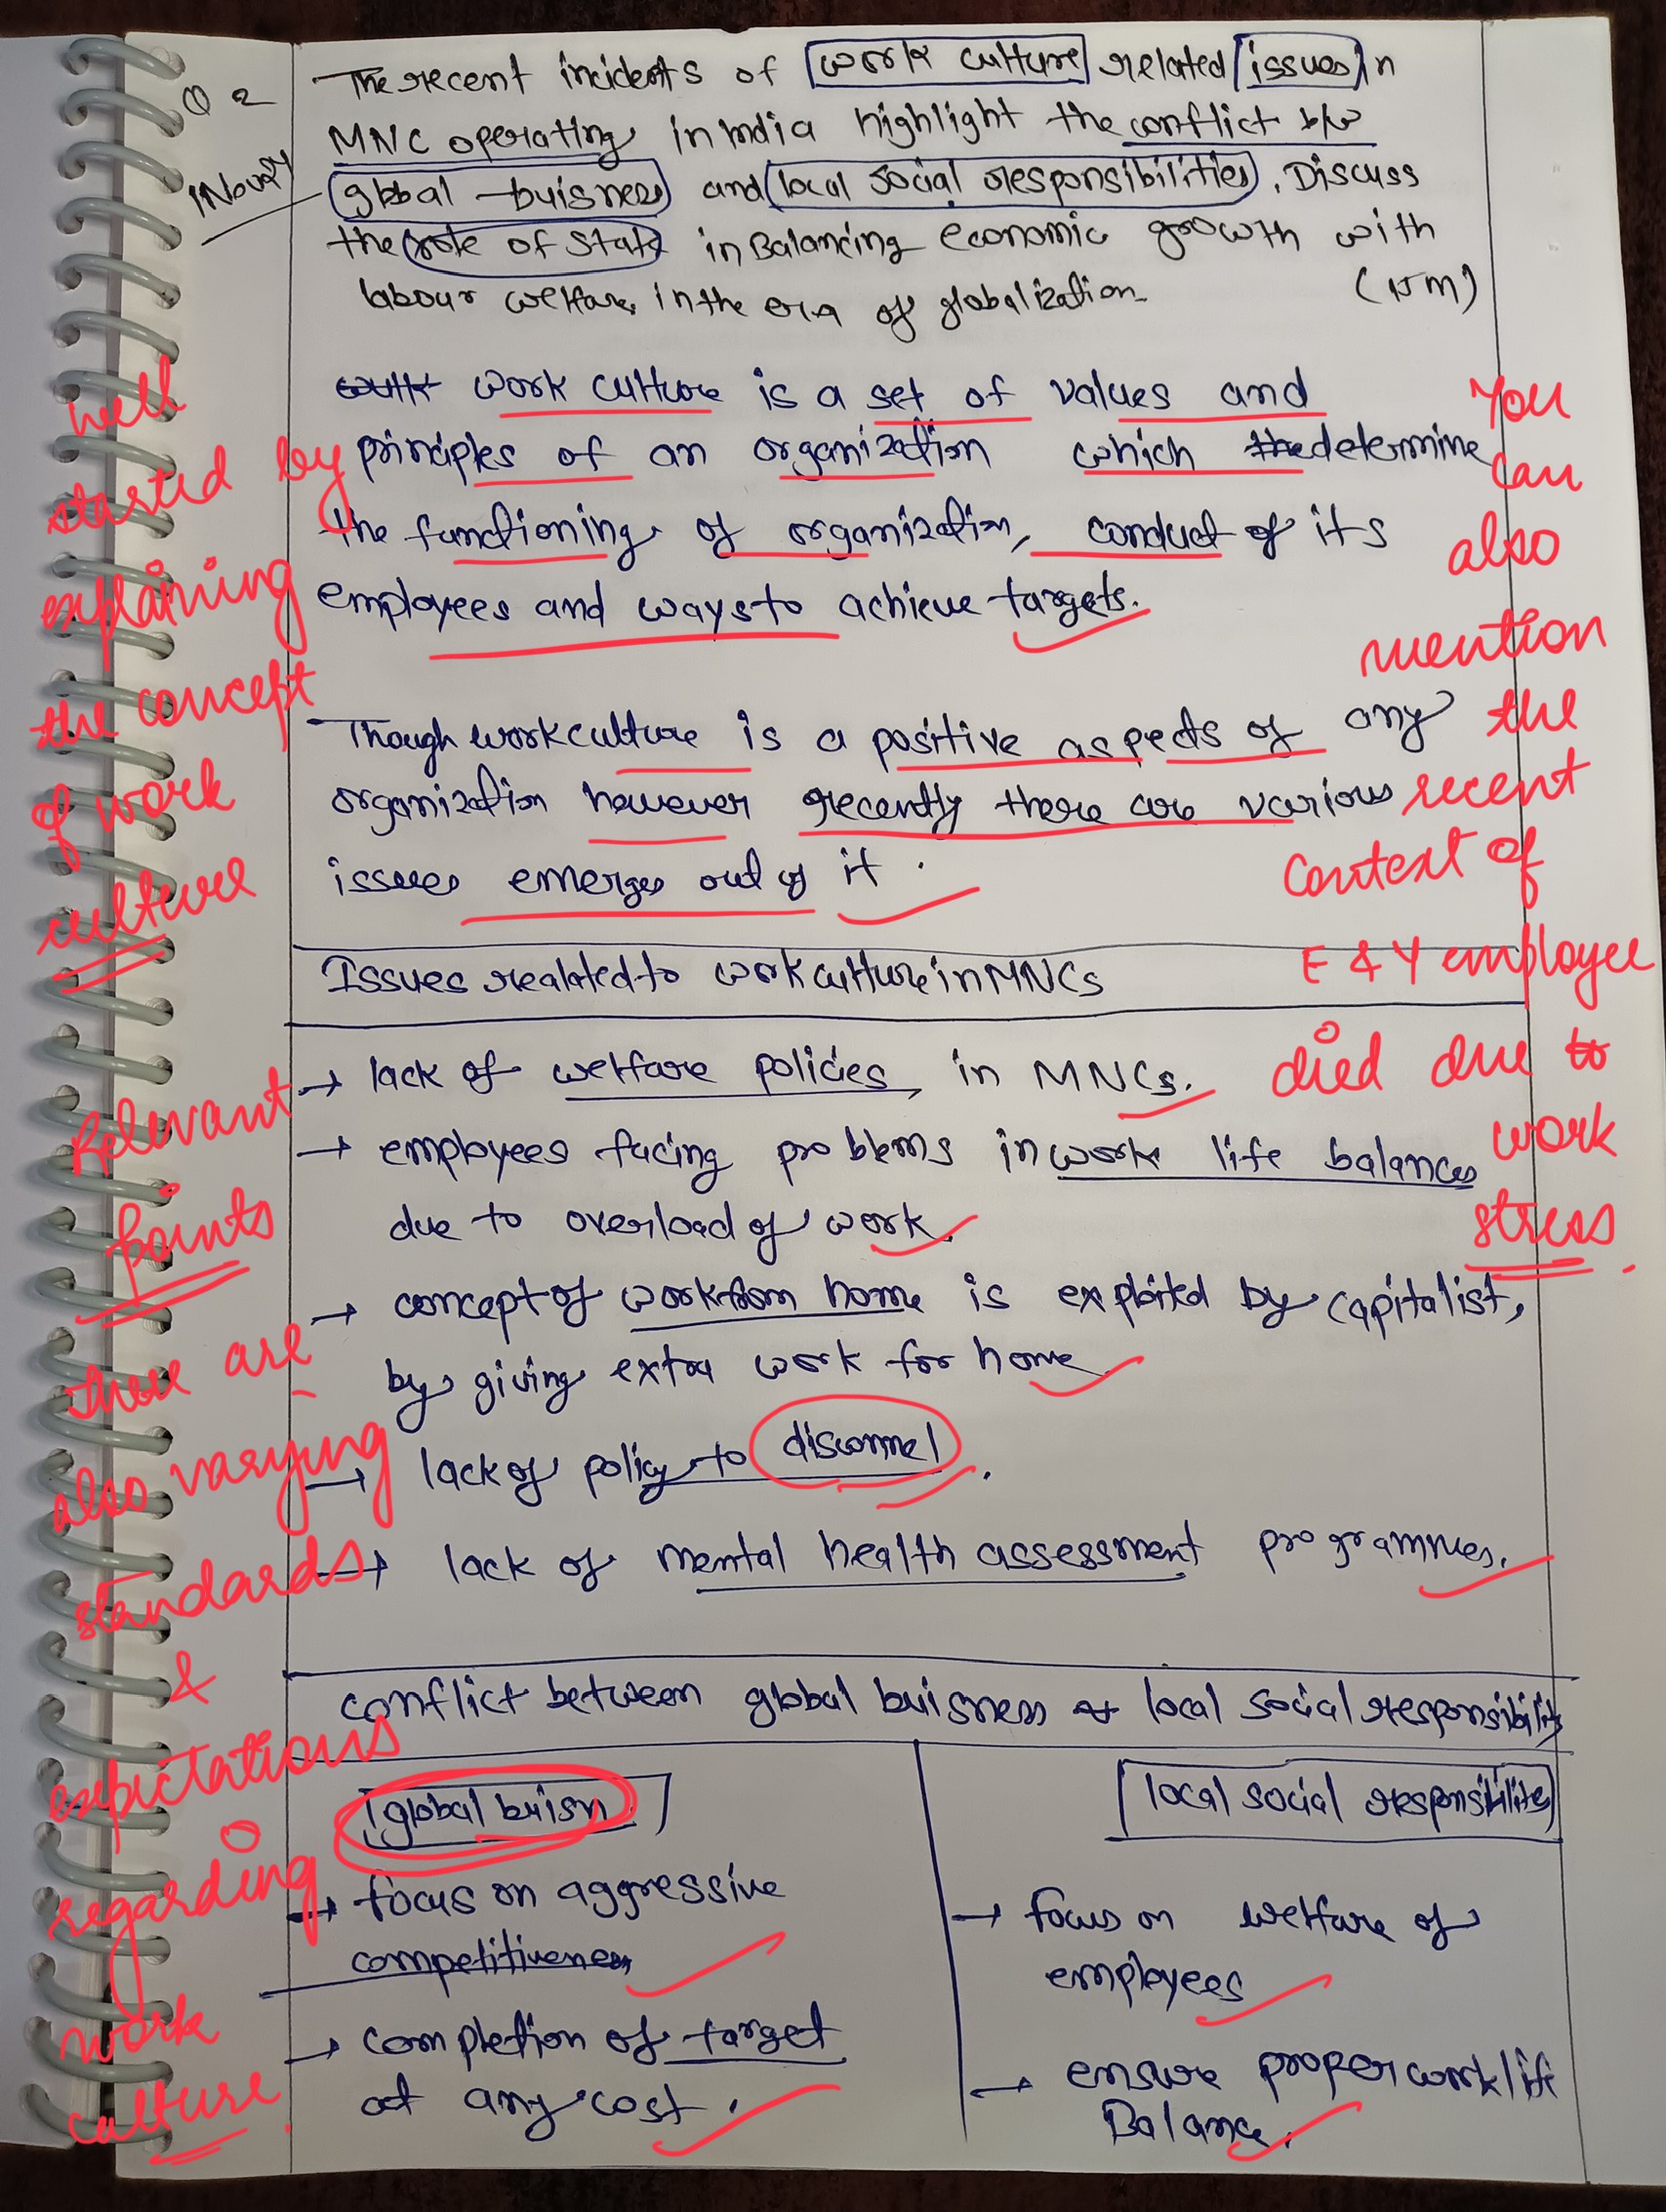 Q 2
The recent incidents of work culture related issues in
MNC operating in India highlight the conflict b/w
global buisness and local social responsibilities. Discuss
the role of State in Balancing economic growth with
labour welfare in the era of globalization. (15m)
work culture is a set of values and
principles of an organization which the determine
the functioning of organization, conduct of its
employees and ways to achieve targets.
Though work culture is a positive aspects of any
organization however recently there are various
issues emerges out of it.
Well
started by
explaining
the concept
of work
culture
You
can
also
mention
the
recent
context of
E & Y employee
died due to
work
stress.
Issues realated to work culture in MNCs
→ lack of welfare policies, in MNCs.
→ employees facing problems in work life balances
due to overload of work.
→ concept of work from home is exploited by capitalist,
by giving extra work for home
→ lack of policy to disconnel.
→ lack of mental health assessment programmes.
Relevant
points
there are
also varying
standards
&
expectations
regarding
work
culture.
conflict between global buisness & local social responsibility
global buisn
→ focus on aggressive
competitiveness
→ completion of target
at any cost.
local social responsibilite
→ focus on welfare of
employees
→ ensure proper work life
Balance.